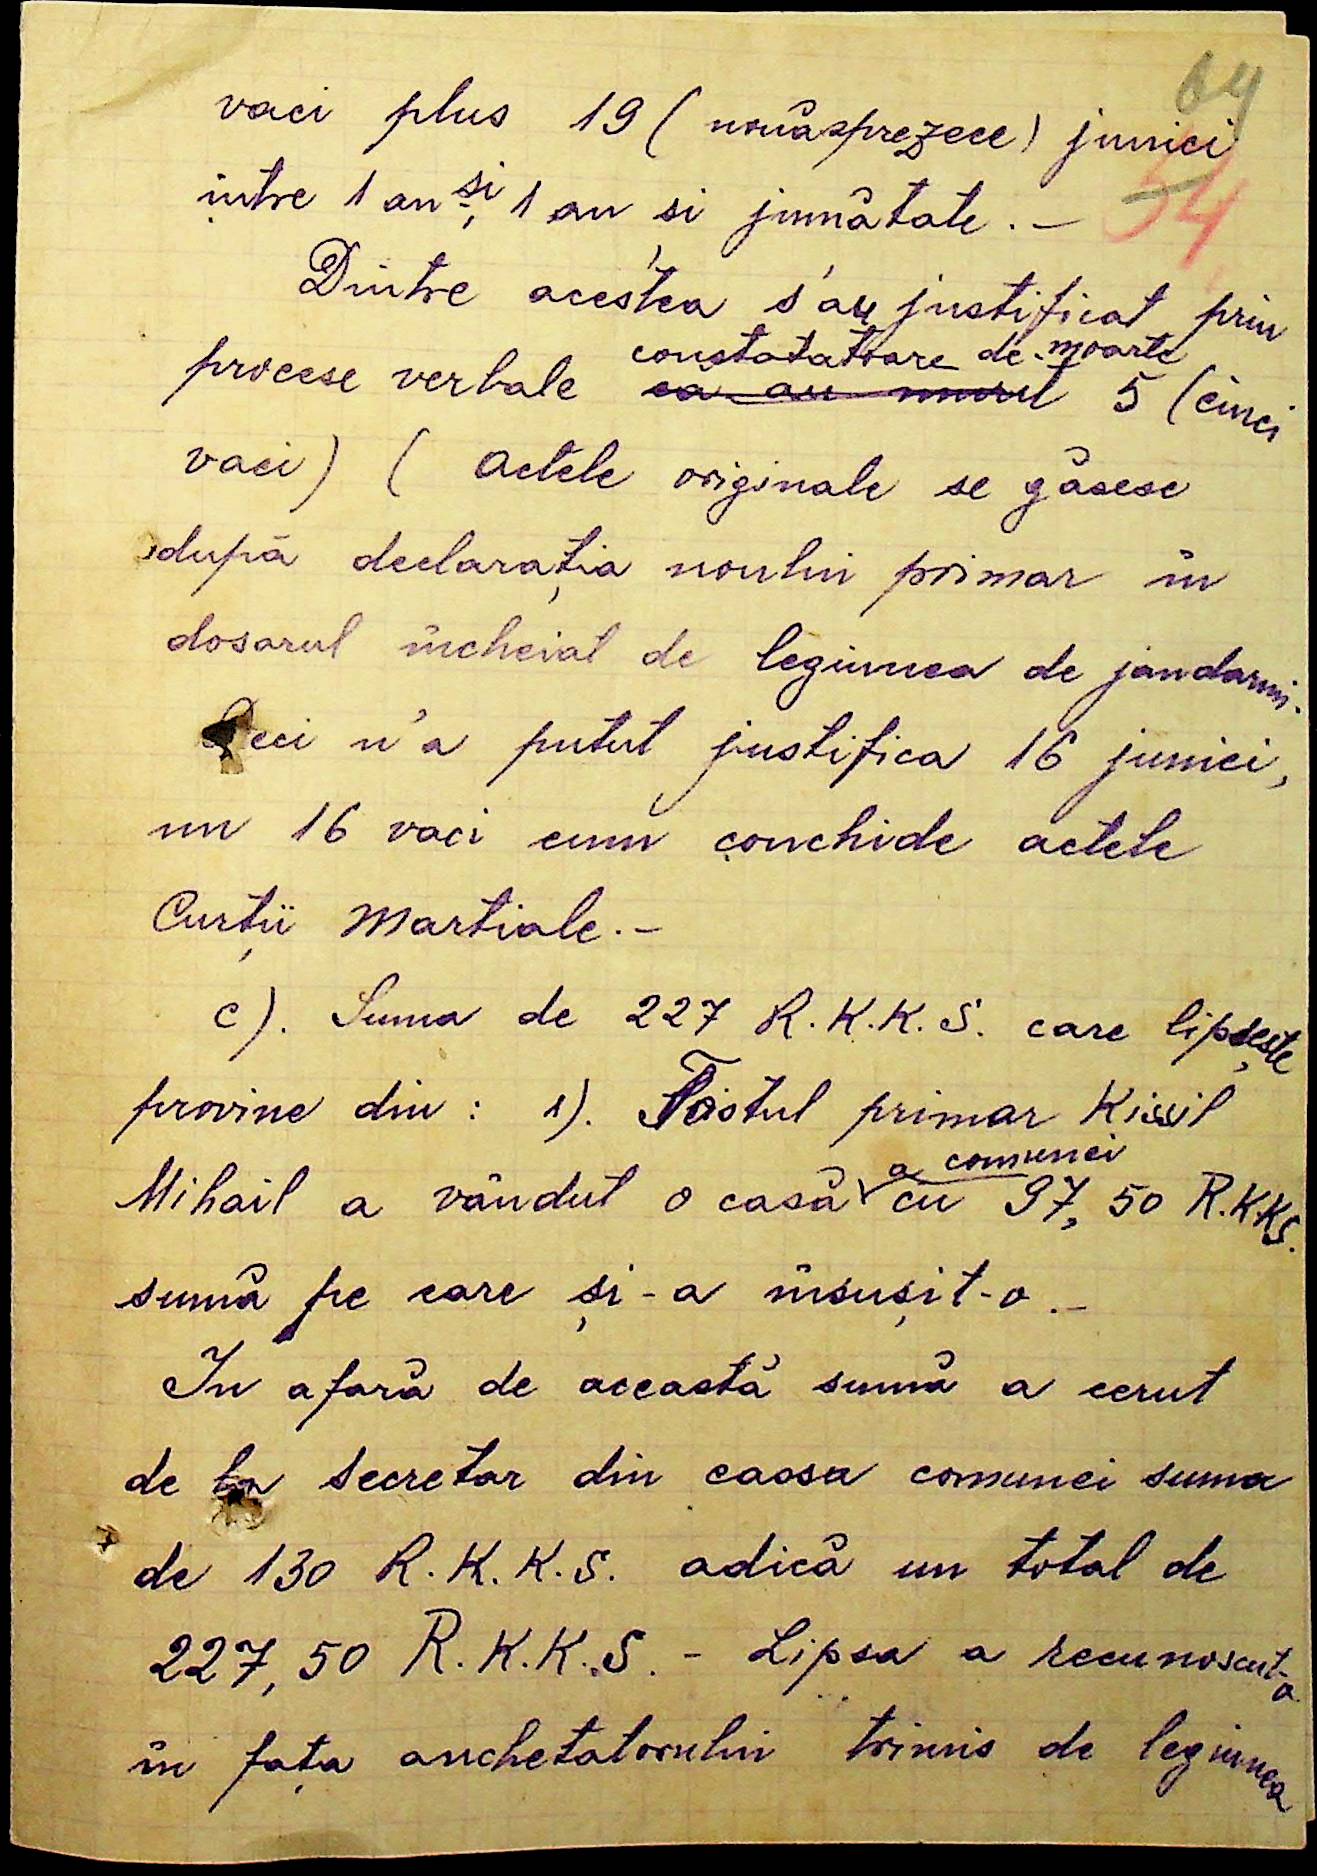 64
54
vaci plus 19 (nouăsprezece) junici
între 1 an și 1 an si jumătate. –
Dintre acestea s'au justificat prin
constatatoare de moarte
procese verbale că au murit 5 (cinci
vaci) (actele originale se găsesc
după declarația noului primar în
dosarul încheiat de legiunea de jandarmi.
Deci n'a putut justifica 16 junici,
nu 16 vaci cum conchide actele
Curții Martiale. –
c). Suma de 227 R.K.K.S. care lipsește
provine din: 1). Fostul primar Kissil
a comunei
Mihail a vândut o casă cu 97,50 R.K.K.S.
sumă pe care și-a însușit-o. –
In afară de această sumă a cerut
de la secretar din cassa comunei suma
de 130 R.K.K.S. adică un total de
227,50 R.K.K.S. – Lipsa a recunoscut-o
în fața anchetatorului trimis de legiunea